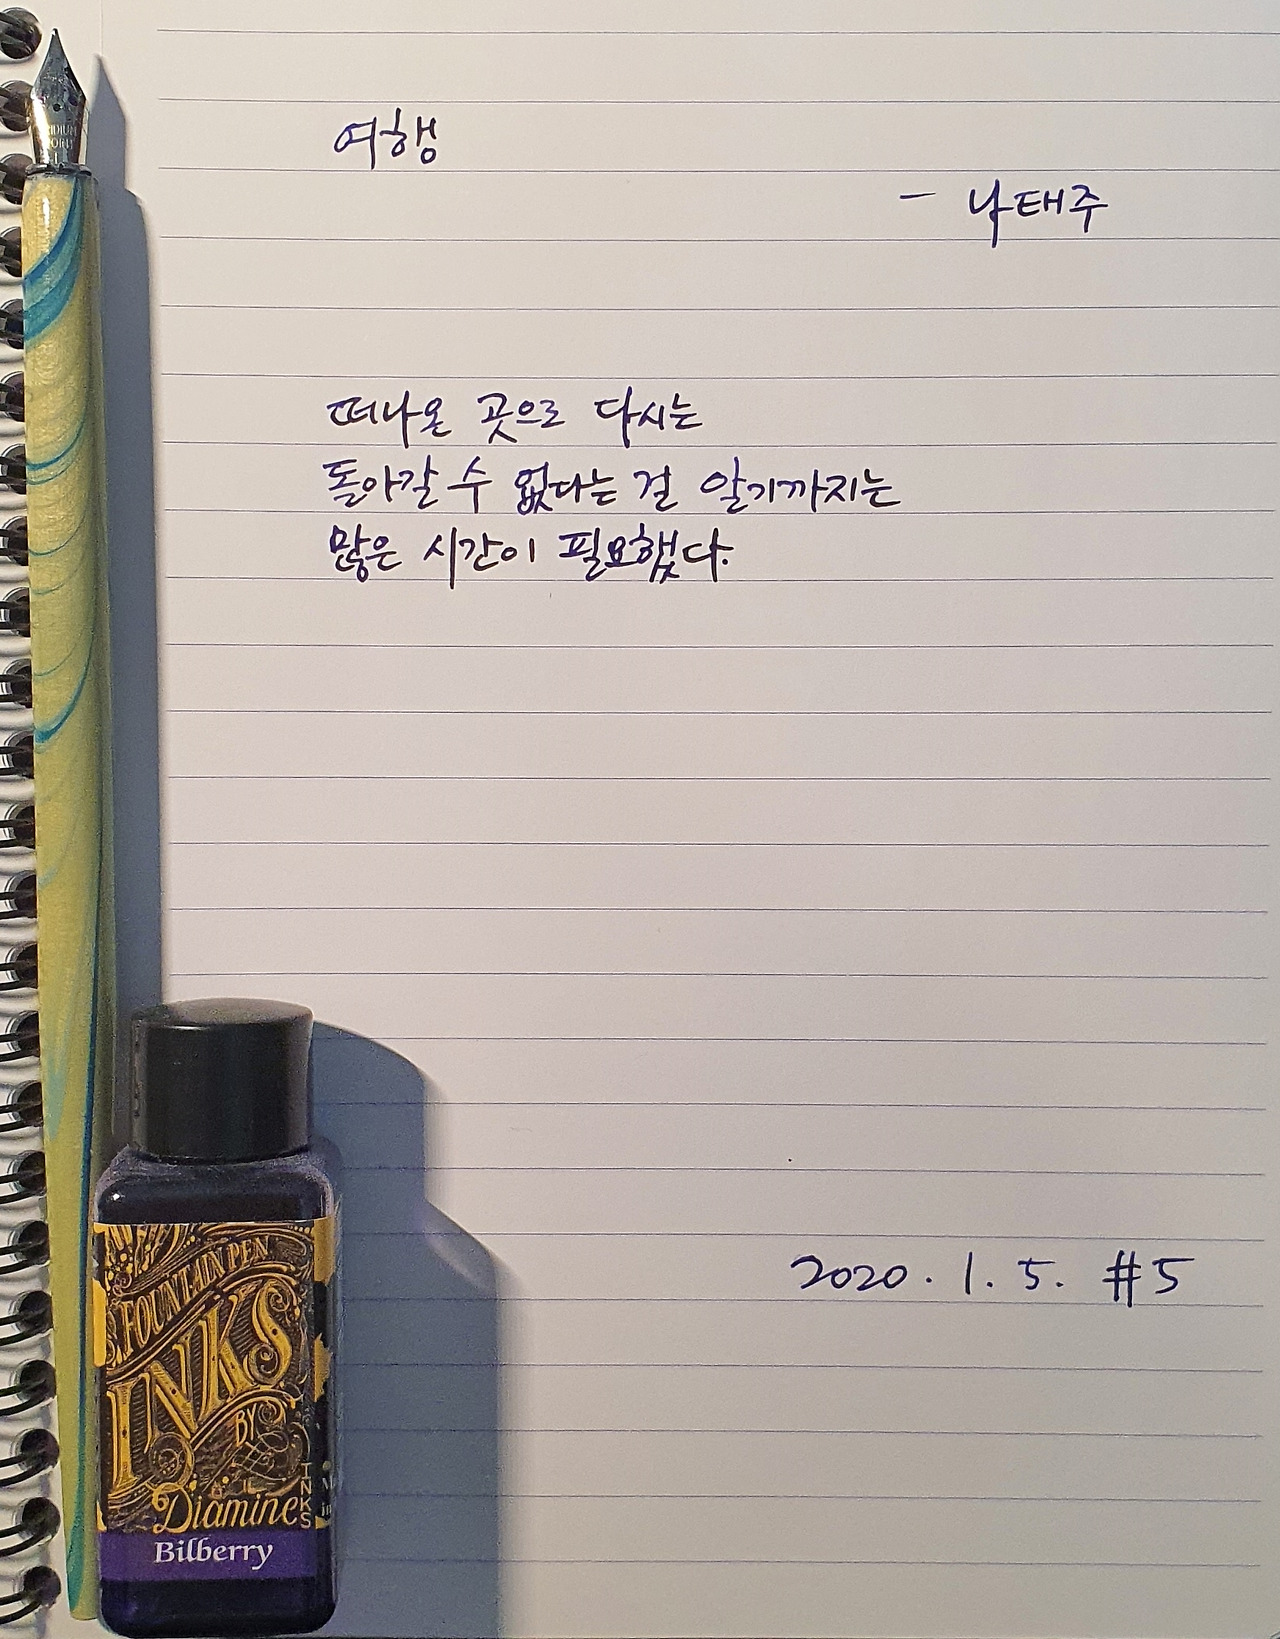 여행
- 나태주
떠나온 곳으로 다시는
돌아갈 수 없다는 걸 알기까지는
많은 시간이 필요했다.
2020. 1. 5. #5
IRIDIUM
POINT
FOUNTAIN PEN
INKS
BY
Diamine
INKS
Bilberry